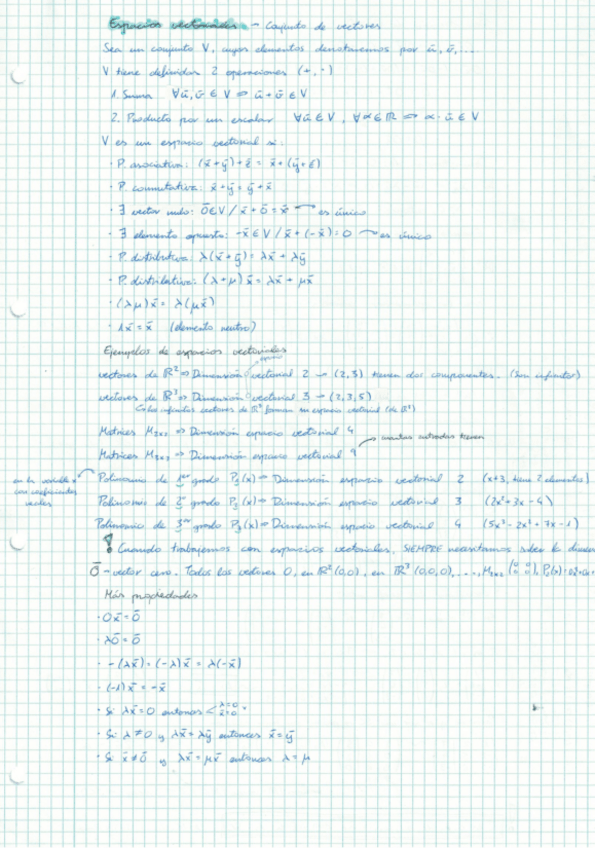 Espacios vectoriales → Conjunto de vectores
Sea un conjunto V, cuyos elementos denotaremos por ū, v̄, ...
V tiene definidas 2 operaciones (+, ·)
1. Suma ∀ū, v̄ ∈ V ⇒ ū + v̄ ∈ V
2. Producto por un escalar ∀ū ∈ V, ∀α ∈ ℝ ⇒ α · ū ∈ V
V es un espacio vectorial si:
· P. asociativa: (x̄ + ȳ) + z̄ = x̄ + (ȳ + z̄)
· P. conmutativa: x̄ + ȳ = ȳ + x̄
· ∃ vector nulo: 0̄ ∈ V / x̄ + 0̄ = x̄ → es único
· ∃ elemento opuesto: -x̄ ∈ V / x̄ + (-x̄) = 0 → es único
· P. distributiva: λ(x̄ + ȳ) = λx̄ + λȳ
· P. distributiva: (λ + μ) x̄ = λx̄ + μx̄
· (λμ) x̄ = λ(μx̄)
· 1x̄ = x̄ (elemento neutro)
Ejemplos de espacios vectoriales
espacio
vectores de ℝ² ⇒ Dimensión vectorial 2 → (2,3) tienen dos componentes. (Son infinitos)
vectores de ℝ³ ⇒ Dimensión vectorial 3 → (2,3,5)
↳ Los infinitos vectores de ℝ² forman un espacio vectorial (de ℝ²)
Matrices M₂ₓ₂ ⇒ Dimensión espacio vectorial 4
→ cuantas entradas tienen
Matrices M₃ₓ₃ ⇒ Dimensión espacio vectorial 9
en la variable x
con coeficientes
reales
Polinomios de 1er grado P₁(x) ⇒ Dimensión espacio vectorial 2 (x+3, tiene 2 elementos)
Polinomios de 2º grado P₂(x) ⇒ Dimensión espacio vectorial 3 (2x²+3x-4)
Polinomios de 3er grado P₃(x) ⇒ Dimensión espacio vectorial 4 (5x³-2x²+7x-1)
! Cuando trabajemos con espacios vectoriales, SIEMPRE necesitamos saber la
0̄ → vector cero. Todos los vectores 0, en ℝ² (0,0), en ℝ³ (0,0,0), ..., M₂ₓ₂ (0 0 0 0), P₂(x)
Más propiedades
· 0x̄ = 0̄
· λ0̄ = 0̄
· -(λx̄) = (-λ)x̄ = λ(-x̄)
· (-1)x̄ = -x̄
· Si λx̄ = 0 entonces < λ=0 x̄=0
· Si λ ≠ 0 y λx̄ = λȳ entonces x̄ = ȳ
· Si x̄ ≠ 0̄ y λx̄ = μx̄ entonces λ = μ